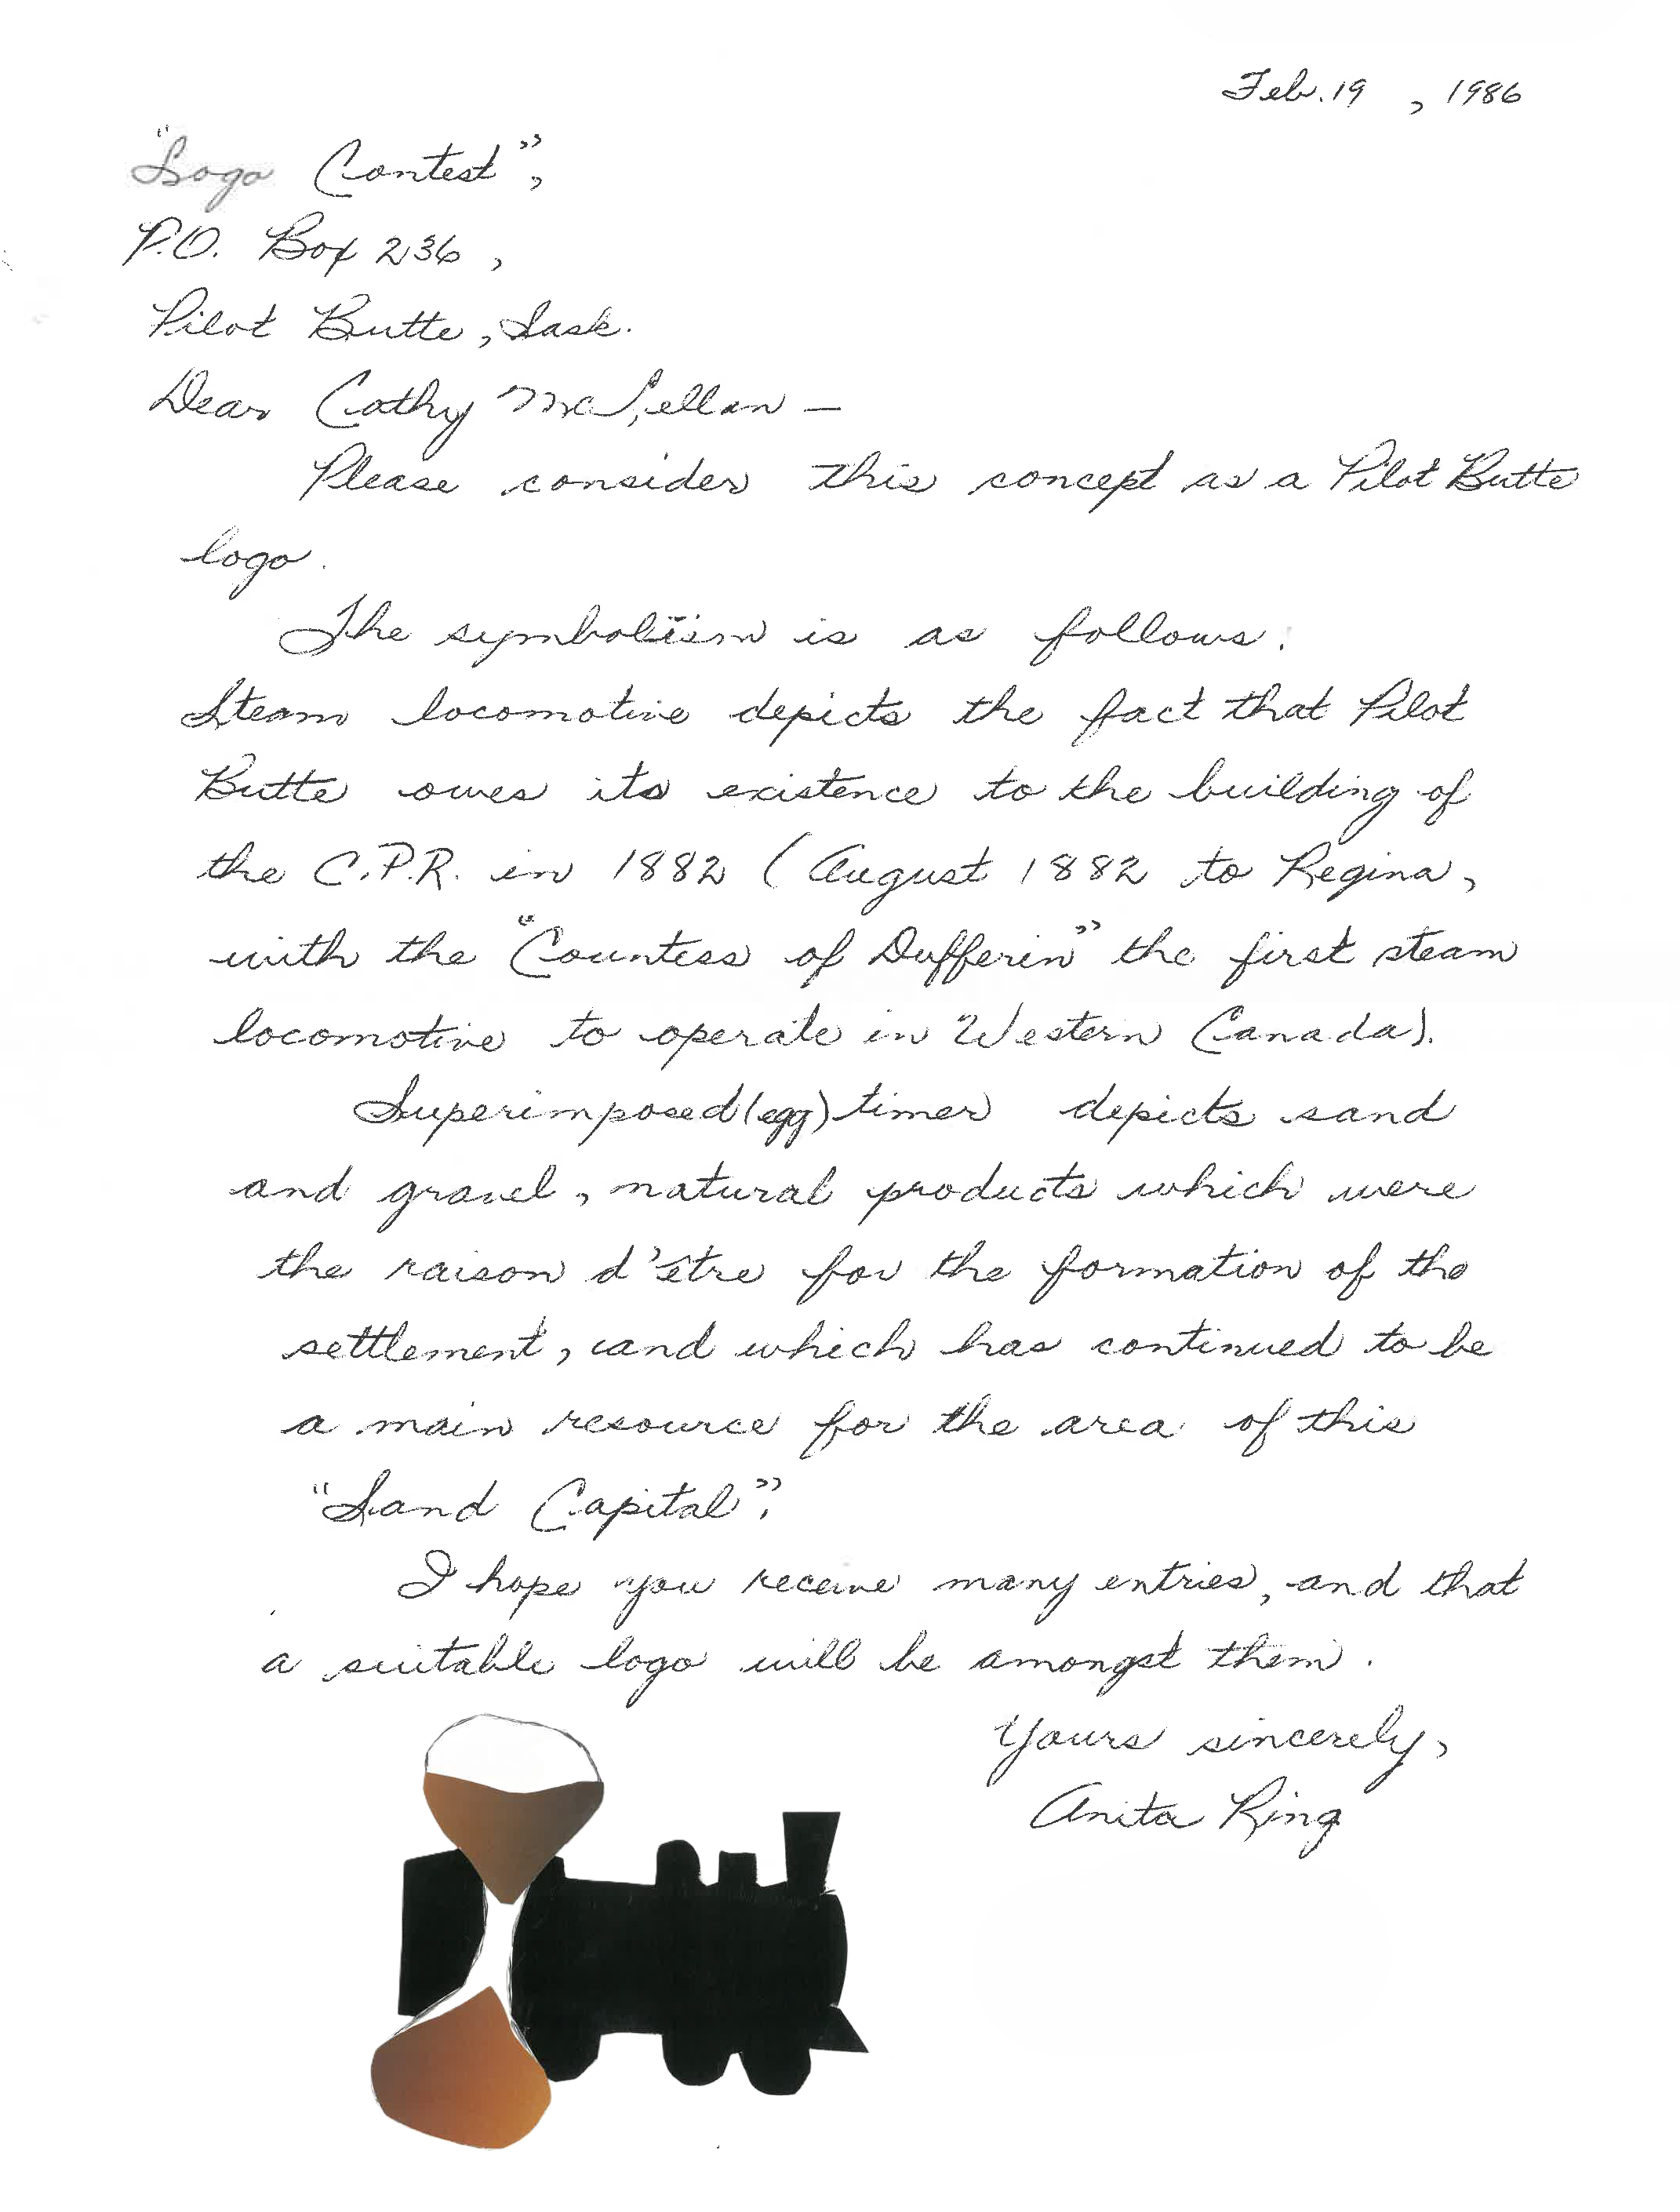 Feb. 19, 1986
"Logo Contest",
P.O. Box 236,
Pilot Butte, Sask.
Dear Cathy McLellan —
Please consider this concept as a Pilot Butte
logo.
The symbolism is as follows:
Steam locomotive depicts the fact that Pilot
Butte owes its existence to the building of
the C.P.R. in 1882 (August 1882 to Regina,
with the "Countess of Dufferin" the first steam
locomotive to operate in Western Canada).
Superimposed (egg) timer depicts sand
and gravel, natural products which were
the raison d'être for the formation of the
settlement, and which has continued to be
a main resource for the area of this
"Sand Capital".
I hope you receive many entries, and that
a suitable logo will be amongst them.
Yours sincerely,
Anita Ring